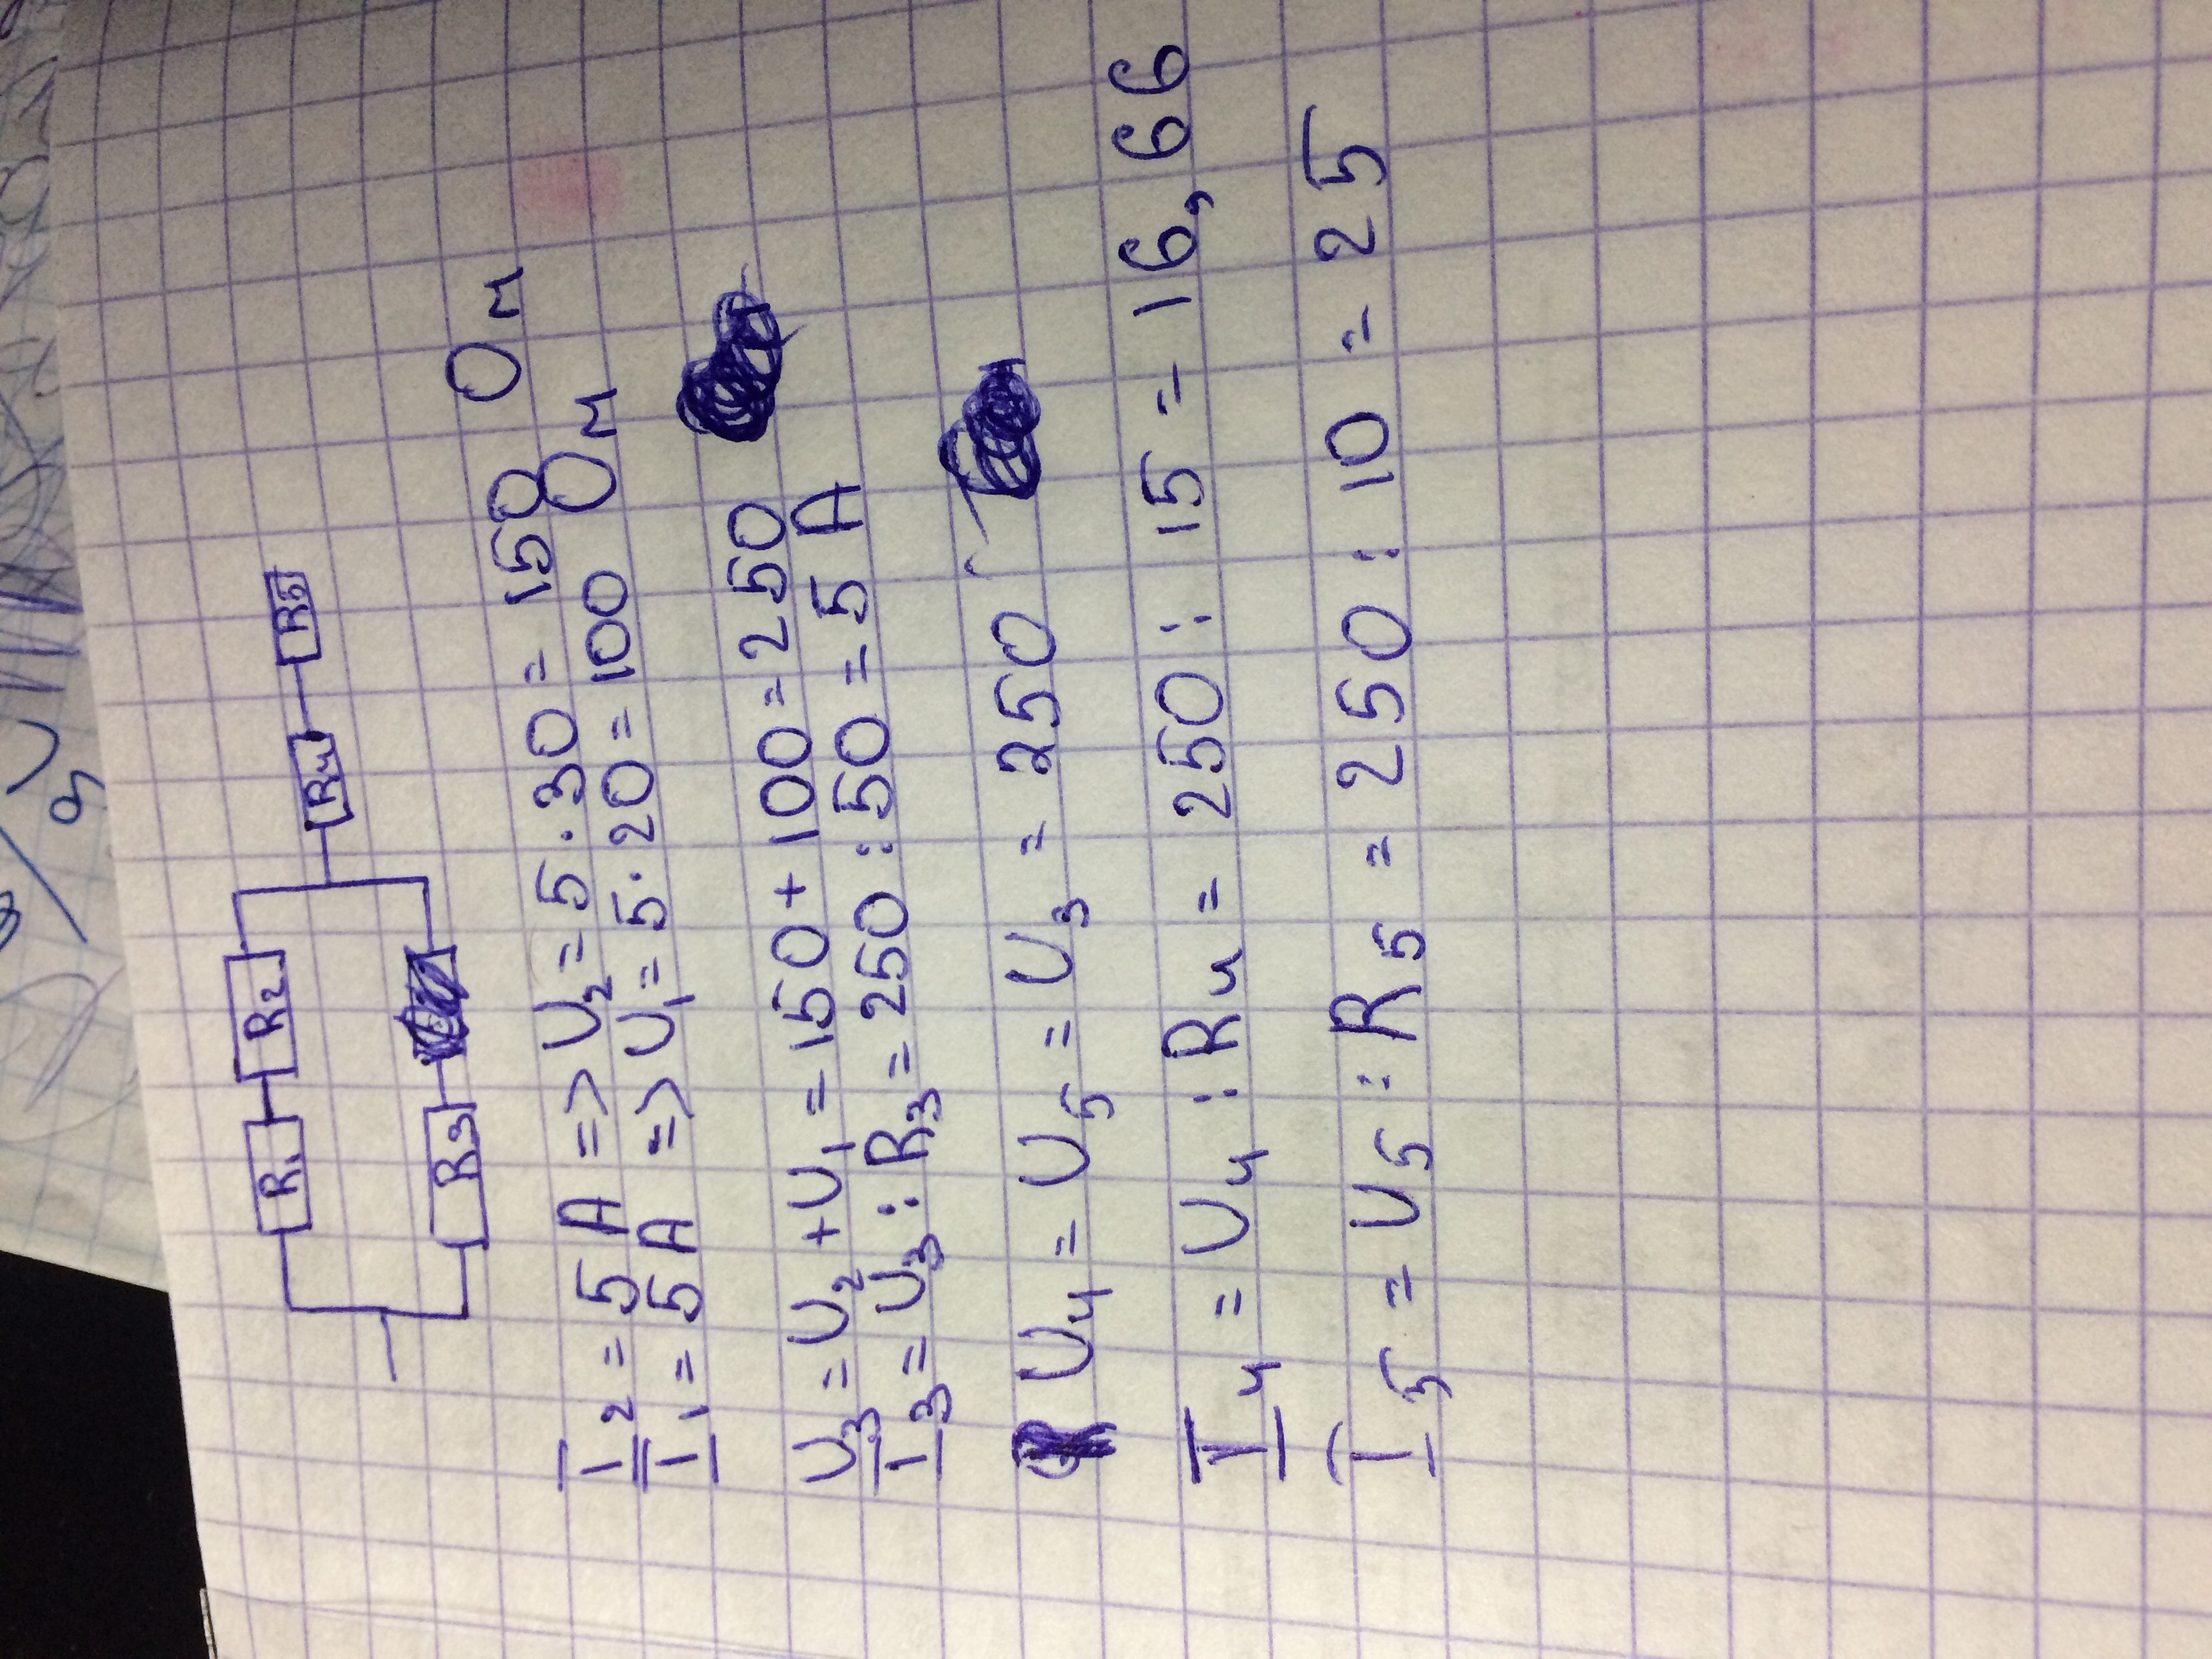 R₁ R₂ R₄ R₅
R₃
I₂ = 5 A => U₂ = 5 · 30 = 150 Ом
I₁ = 5 A => U₁ = 5 · 20 = 100 Ом
U₃ = U₂ + U₁ = 150 + 100 = 250
I₃ = U₃ : R₃ = 250 : 50 = 5 A
U₄ = U₅ = U₃ = 250
I₄ = U₄ : R₄ = 250 : 15 = 16,66
I₅ = U₅ : R₅ = 250 : 10 = 25